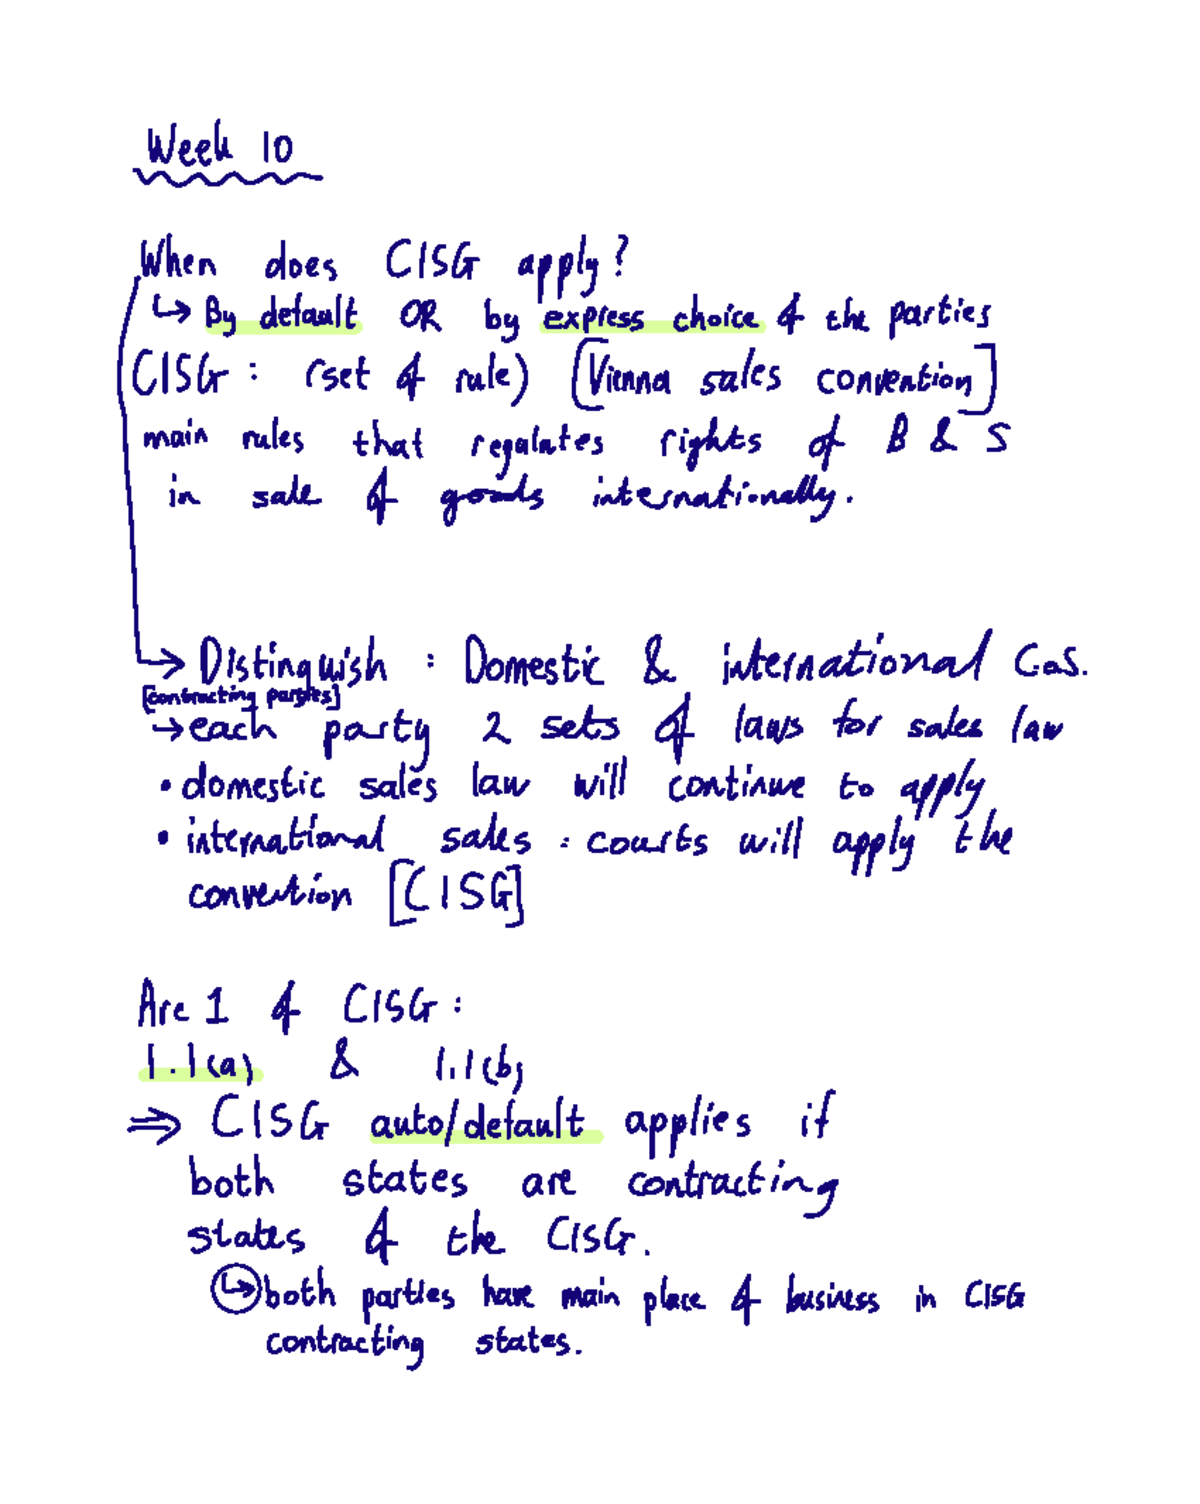 Week 10
When does CISG apply?
↳ By default OR by express choice of the parties
CISG: (set of rule) [Vienna sales convention]
main rules that regulates rights of B & S
in sale of goods internationally.
→ Distinguish : Domestic & international CoS.
[contracting parties]
→ each party 2 sets of laws for sales law
• domestic sales law will continue to apply
• international sales : courts will apply the
convention [CISG]
Arc 1 of CISG:
1.1(a) & 1.1(b)
⇒ CISG auto/default applies if
both states are contracting
states of the CISG.
↳ both parties have main place of business in CISG
contracting states.